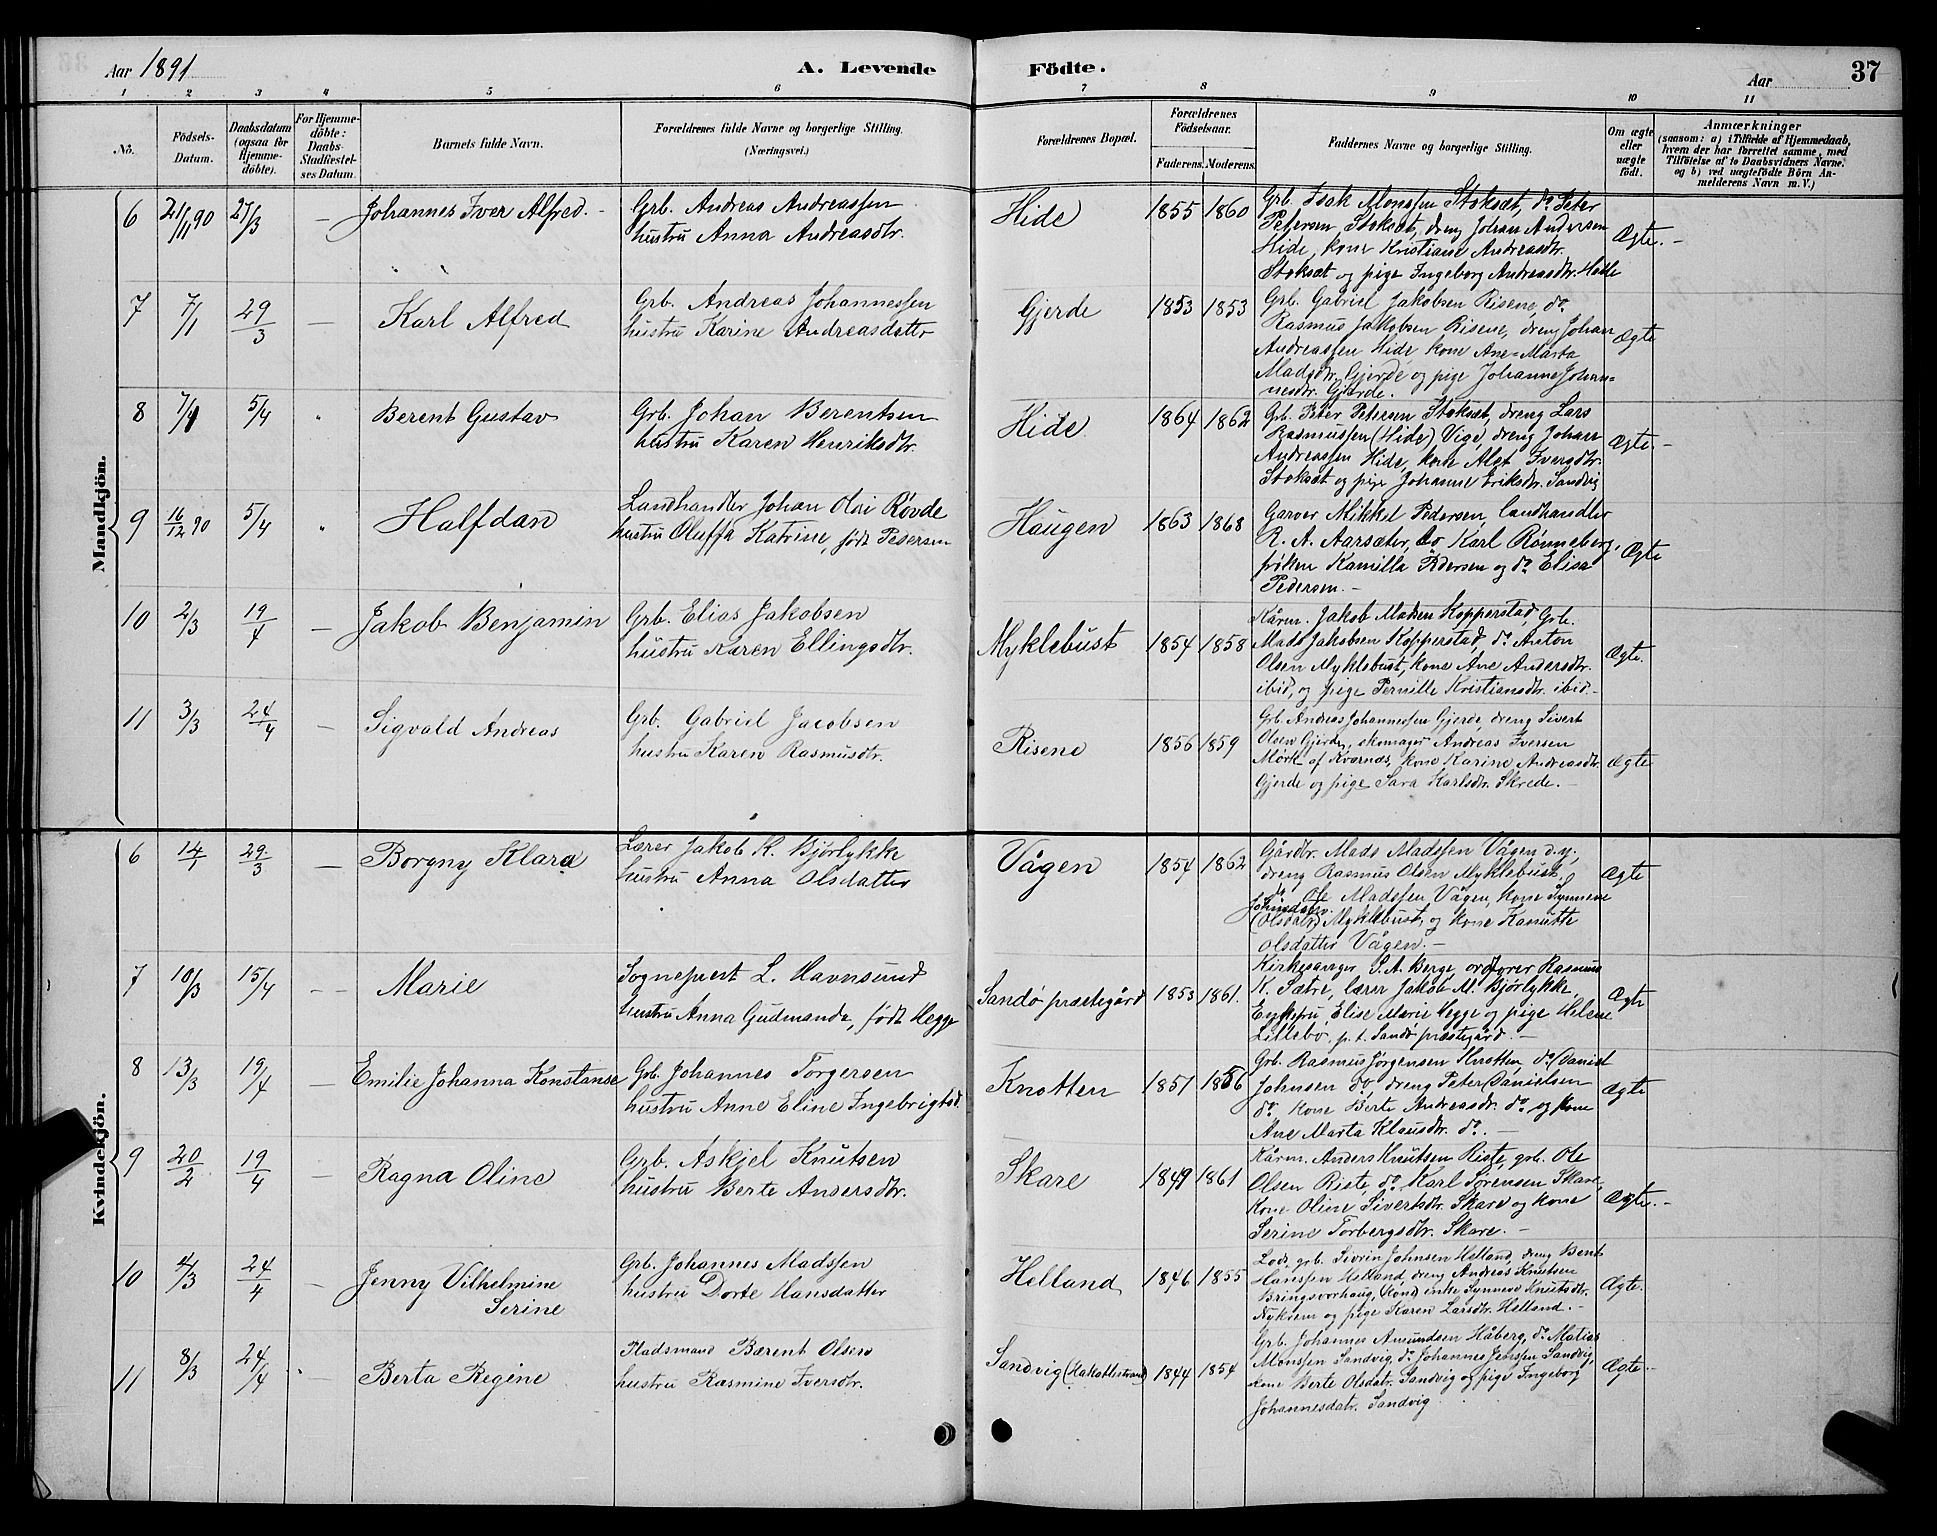 Aar 1891
A. Levende
Födte.
Aar
37
1 2 3 4 5 6 7 8 9 10 11
No.
Födsels-
Datum.
Daabsdatum
(ogsaa for
Hjemme-
döbte).
For Hjemme-
döbte:
Daabs-
Stadfæstel-
ses Datum.
Barnets fulde Navn.
Forældrenes fulde Navne og borgerlige Stilling.
(Næringsvei.)
Forældrenes Bopæl.
Forældrenes
Födselsaar.
Faderens. Moderens.
Faddernes Navne og borgerlige Stilling.
Om ægte
eller
uægte
födt.
Anmærkninger
(saasom: a) i Tilfælde af Hjemmedaab,
hvem der har forrettet samme, med
Tilföielse af to Daabsvidners Navne,
og b) ved uægtefödte Börn An-
melderens Navn m. V.)
Mandkjön.
6 21/11 90 27/3 – Johannes Iver Alfred.
Grb. Andreas Andreassen
hustru Anna Andreasdtr.
Hide 1855 1860
Grb. Isak Monssen Stoksæt, do Peter
Petersen Stoksæt, dreng Johan Andersen
Hide, kone Kristiane Andreasdtr.
Stoksæt og pige Ingeborg Andreasdtr. Hatle
Ægte. –
7 7/1 29/3 – Karl Alfred
Grb. Andreas Johannessen
hustru Karine Andreasdatter
Gjerde 1853 1853
Grb. Gabriel Jakobsen Risene, do
Rasmus Jakobsen Risene, dreng Johan
Andreassen Hide, kone Ane-Marta
Madsdtr. Gjerde og pige Johanne Johan=
nesdtr. Gjerde.
Ægte
8 7/1 5/4 " Berent Gustav
Grb. Johan Berentsen
hustru Karen Henriksdtr.
Hide 1864 1862
Grb. Peter Petersen Stoksæt, dreng Lars
Rasmussen (Hide) Vige, dreng Johan
Andreassen Hide, kone Alet Iversdtr.
Stoksæt og pige Johanne Eriksdtr. Sandvig
Ægte. –
9 16/12 90 5/4 " Halfdan
Landhandler Johan Olai Røvde
hustru Oluffa Katrine, født Pedersen
Haugen 1863 1868
Garver Mikkel Pedersen, landhandler
R. A. Aarsæter, do Karl Rønneberg,
frøken Kamilla Pedersen og do Elisa
Pedersen. –
Ægte
10 2/3 19/4 – Jakob Benjamin
Grb. Elias Jakobsen
hustru Karen Ellingsdtr.
Myklebust 1854 1858
Kårm. Jakob Madsen Kopperstad Grb.
Mads Jakobsen Kopperstad do Anton
Olsen Myklebust, kone Ane Andersdtr.
ibid, og pige Pernille Kristiansdtr. ibid. –
Ægte.
11 3/3 24/4 – Sigvald Andreas
Grb. Gabriel Jacobsen
hustru Karen Rasmusdtr.
Risene 1856 1859
Grb. Andreas Johannessen Gjerde, dreng Sivert
Olsen Gjerde, skomager Andreas Iversen
Mørk af Kvarnæs, kone Karine Andreasdtr.
Gjerde og pige Sara Karlsdtr. Skrede. –
Ægte
Kvindekjön.
6 14/1 29/3 – Borgny Klara
Lærer Jakob K. Bjørlykke
hustru Anna Olsdatter
Vågen 1854 1862
Gårdbr. Mads Madssen Vågen d.y.,
dreng Rasmus Olsen Myklebust,
do Ole Madssen Vågen, kone Synneve
Johnsdatr.
(Olsdatr) Myklebust, og kone Kanutte
Olsdatter Vågen. –
Ægte
7 10/3 15/4 – – Marie
Sogneprest L. Havnsund
hustru Anna Gudmanda, født Hegge
Sandø præstegård 1853 1861.
Kirkesanger S. A. Berge, ordfører Rasmus
K. Sætre, lærer Jakob M. Bjørlykke,
Enkefru Elise Marie Hegge og pige Helene
Lillebø, p. t. Sandø præstegård. –
Ægte
8 13/3 19/4 – Emilie Johanna Konstanse
Grb. Johannes Torgersen
hustru Anne Eline Ingebrigtsd.
Knotten 1851 1856
Grb. Rasmus Jørgensen Knotten, do Daniel
Johnsen do, dreng Peter Danielsen
do, kone Berte Andreasdr. do og kone
Ane Marta Klausdtr. do. –
Ægte
9 20/2 19/4 – Ragna Oline
Grb. Askjel Knutsen
hustru Berte Andersdtr.
Skare 1849 1861
Kårm. Anders Knutsen Riste, grb. Ole
Olsen Riste, do Karl Sørensen Skare,
kone Oline Sivertsdtr. Skare og kone
Serine Torbergsdtr. Skare. –
Ægte. –
10 4/3 24/4 – Jenny Vilhelmine
Serine
Grb. Johannes Madssen
hustru Dorte Hansdatter
Helland 1846 1855
Lods, grb. Sivrin Johnsen Helland, dreng Bent
Hanssen Helland, dreng Andreas Knutsen
Bringsvorhaug, (Kone) enke Synneve Knutsdtr.
Nykrem og pige Karen Larsdtr. Helland. –
Ægte.
11 8/3 24/4 – Berta Regine
Pladsmand Bærent Olsen
hustru Rasmine Iversdtr.
Sandvig (Hakallestrand) 1844 1854
Grb. Johannes Amundsen Håberg, do Matias
Monssen Sandvig, do Johannes Jenssen Sandvig,
kone Berte Olsdatr. Sandvig og pige Ingeborg
Johannesdatr. Sandvig
Ægte. –